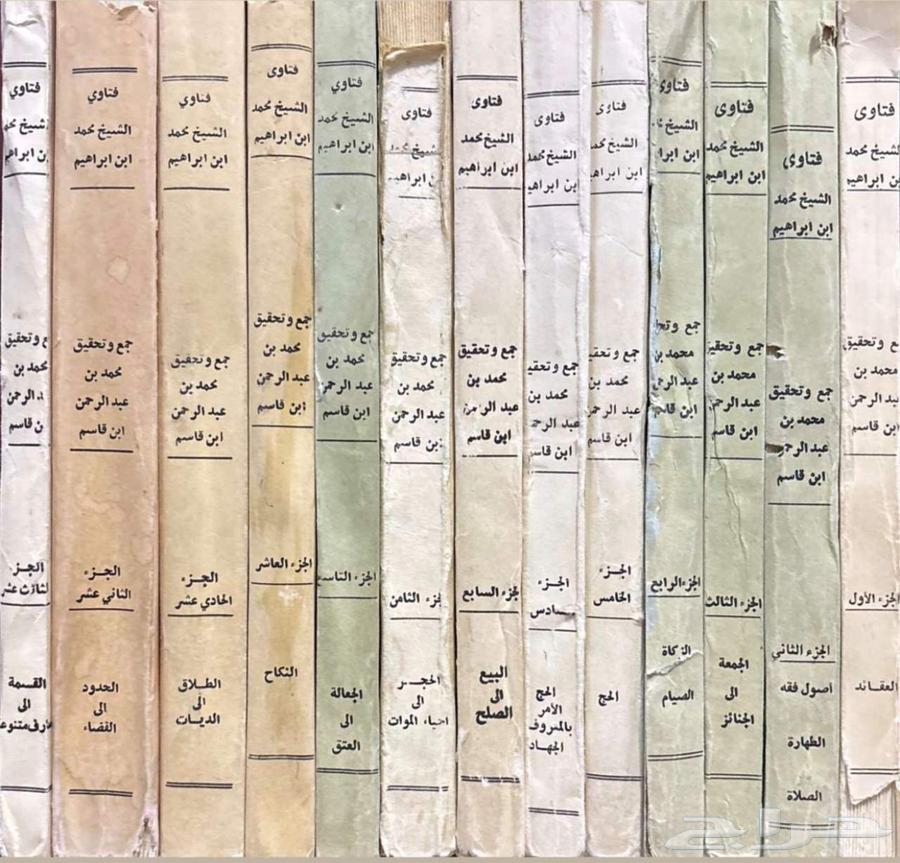 فتاوى
الشيخ محمد
ابن ابراهيم
ع وتحقيق
محمد بن
عبد الرحمن
ابن قاسم
الجزء الأول
العقائد
فتاوى
الشيخ محمد
ابن ابراهيم
جمع وتحقيق
محمد بن
عبد الرحمن
ابن قاسم
الجزء الثاني
أصول فقه
الطهارة
الصلاة
فتاوى
الشيخ محمد
ابن ابراهيم
جمع وتحقيق
محمد بن
عبد الرحمن
ابن قاسم
الجزء الثالث
الجمعة
الى
الجنائز
فتاوى
الشيخ محمد
ابن ابراهيم
جمع وتحقيق
محمد بن
عبد الرحمن
ابن قاسم
الجزء الرابع
الزكاة
الصيام
فتاوى
الشيخ محمد
ابن ابراهيم
جمع وتحقيق
محمد بن
عبد الرحمن
ابن قاسم
الجزء
الخامس
الحج
فتاوى
الشيخ محمد
ابن ابراهيم
جمع وتحقيق
محمد بن
عبد الرحمن
ابن قاسم
الجزء
السادس
الحج
الأمر
بالمعروف
الجهاد
فتاوى
الشيخ محمد
ابن ابراهيم
جمع وتحقيق
محمد بن
عبد الرحمن
ابن قاسم
الجزء السابع
البيع
الى
الصلح
فتاوى
الشيخ محمد
ابن ابراهيم
جمع وتحقيق
محمد بن
عبد الرحمن
ابن قاسم
الجزء الثامن
الحجر
الى
احياء الموات
فتاوي
الشيخ محمد
ابن ابراهيم
جمع وتحقيق
محمد بن
عبد الرحمن
ابن قاسم
الجزء التاسع
الجعالة
الى
العتق
فتاوي
الشيخ محمد
ابن ابراهيم
جمع وتحقيق
محمد بن
عبد الرحمن
ابن قاسم
الجزء العاشر
النكاح
فتاوي
الشيخ محمد
ابن ابراهيم
جمع وتحقيق
محمد بن
عبد الرحمن
ابن قاسم
الجزء
الحادي عشر
الطلاق
الى
الديات
فتاوي
الشيخ محمد
ابن ابراهيم
جمع وتحقيق
محمد بن
عبد الرحمن
ابن قاسم
الجزء
الثاني عشر
الحدود
الى
القضاء
فتاوي
الشيخ محمد
ابن ابراهيم
جمع وتحقيق
محمد بن
عبد الرحمن
ابن قاسم
الجزء
الثالث عشر
القسمة
الى
حراج